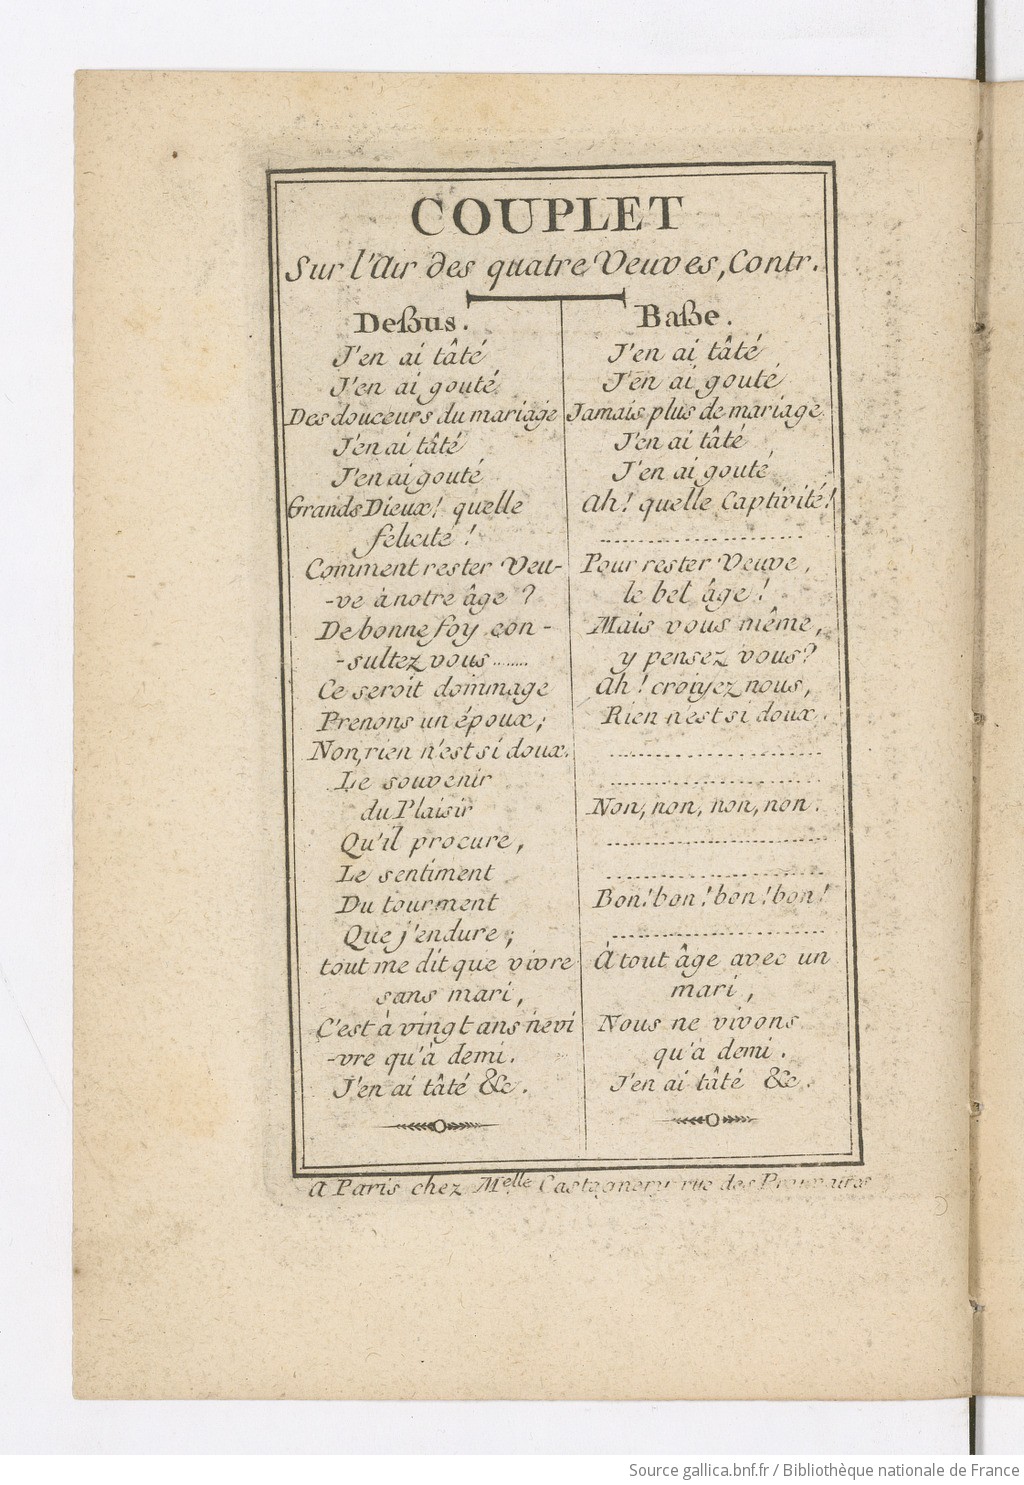 COUPLET
Sur l'Air des quatre Veuves, Contr.
Deßus.
J'en ai tâté
J'en ai gouté
Des douceurs du mariage
J'en ai tâté
J'en ai gouté
Grands Dieux! quelle
felicité !
Comment rester Veu-
-ve à notre âge ?
De bonne foy con-
-sultez vous........
Ce seroit dommage
Prenons un époux;
Non, rien n'est si doux.
Le souvenir
du Plaisir
Qu'il procure,
Le sentiment
Du tourment
Que j'endure;
tout me dit que vivre
sans mari,
C'est à vingt ans ne vi
-vre qu'à demi.
J'en ai tâté &c.
Baße.
J'en ai tâté
J'en ai gouté
Jamais plus de mariage
J'en ai tâté
J'en ai gouté
Ah! quelle Captivité!
........................
Pour rester Veuve,
le bel âge!
Mais vous même,
y pensez vous?
Ah! croiyez nous,
Rien n'est si doux.
........................
........................
Non, non, non, non.
........................
........................
Bon! bon! bon! bon!
........................
À tout âge avec un
mari,
Nous ne vivons
qu'à demi.
J'en ai tâté &c.
A Paris chez Melle Castagnery rue des Prouvaires
Source gallica.bnf.fr / Bibliothèque nationale de France